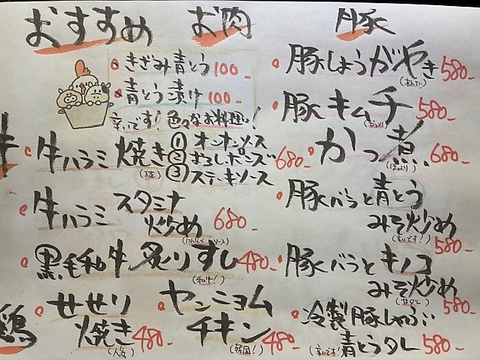 おすすめ お肉
きざみ青とう 100
青とう漬け 100
辛いです! 色々なお料理に!
牛
牛ハラミ焼き 680
① オニオンソース
② おろしポンズ
③ ステーキソース
牛ハラミ スタミナ
炒め 680
黒毛和牛 炙りすし 480
(和牛!)
鶏
せせり
焼き 480
(人気)
ヤンニョム
チキン 480
(韓国!)
豚
豚しょうがやき 580
豚キムチ 580
かつ煮 680
豚バラと青とう
みそ炒め 580
(辛いです!)
豚バラとキノコ
みそ炒め 580
冷製豚しゃぶ
青とうタレ 580
(辛いです!)